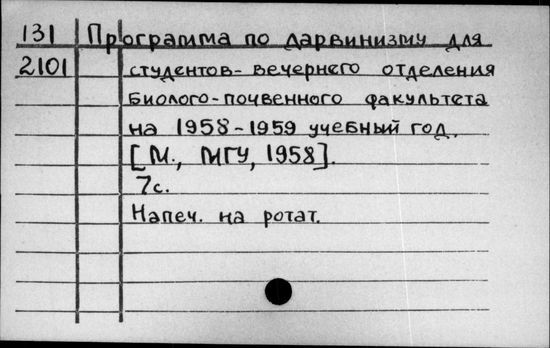 131 Программа по дарвинизму для
2101 студентов-вечернего отделения
Биолого-почвенного факультета
на 1958-1959 учебный год.
[М., МГУ, 1958].
7с.
Напеч. на ротат.